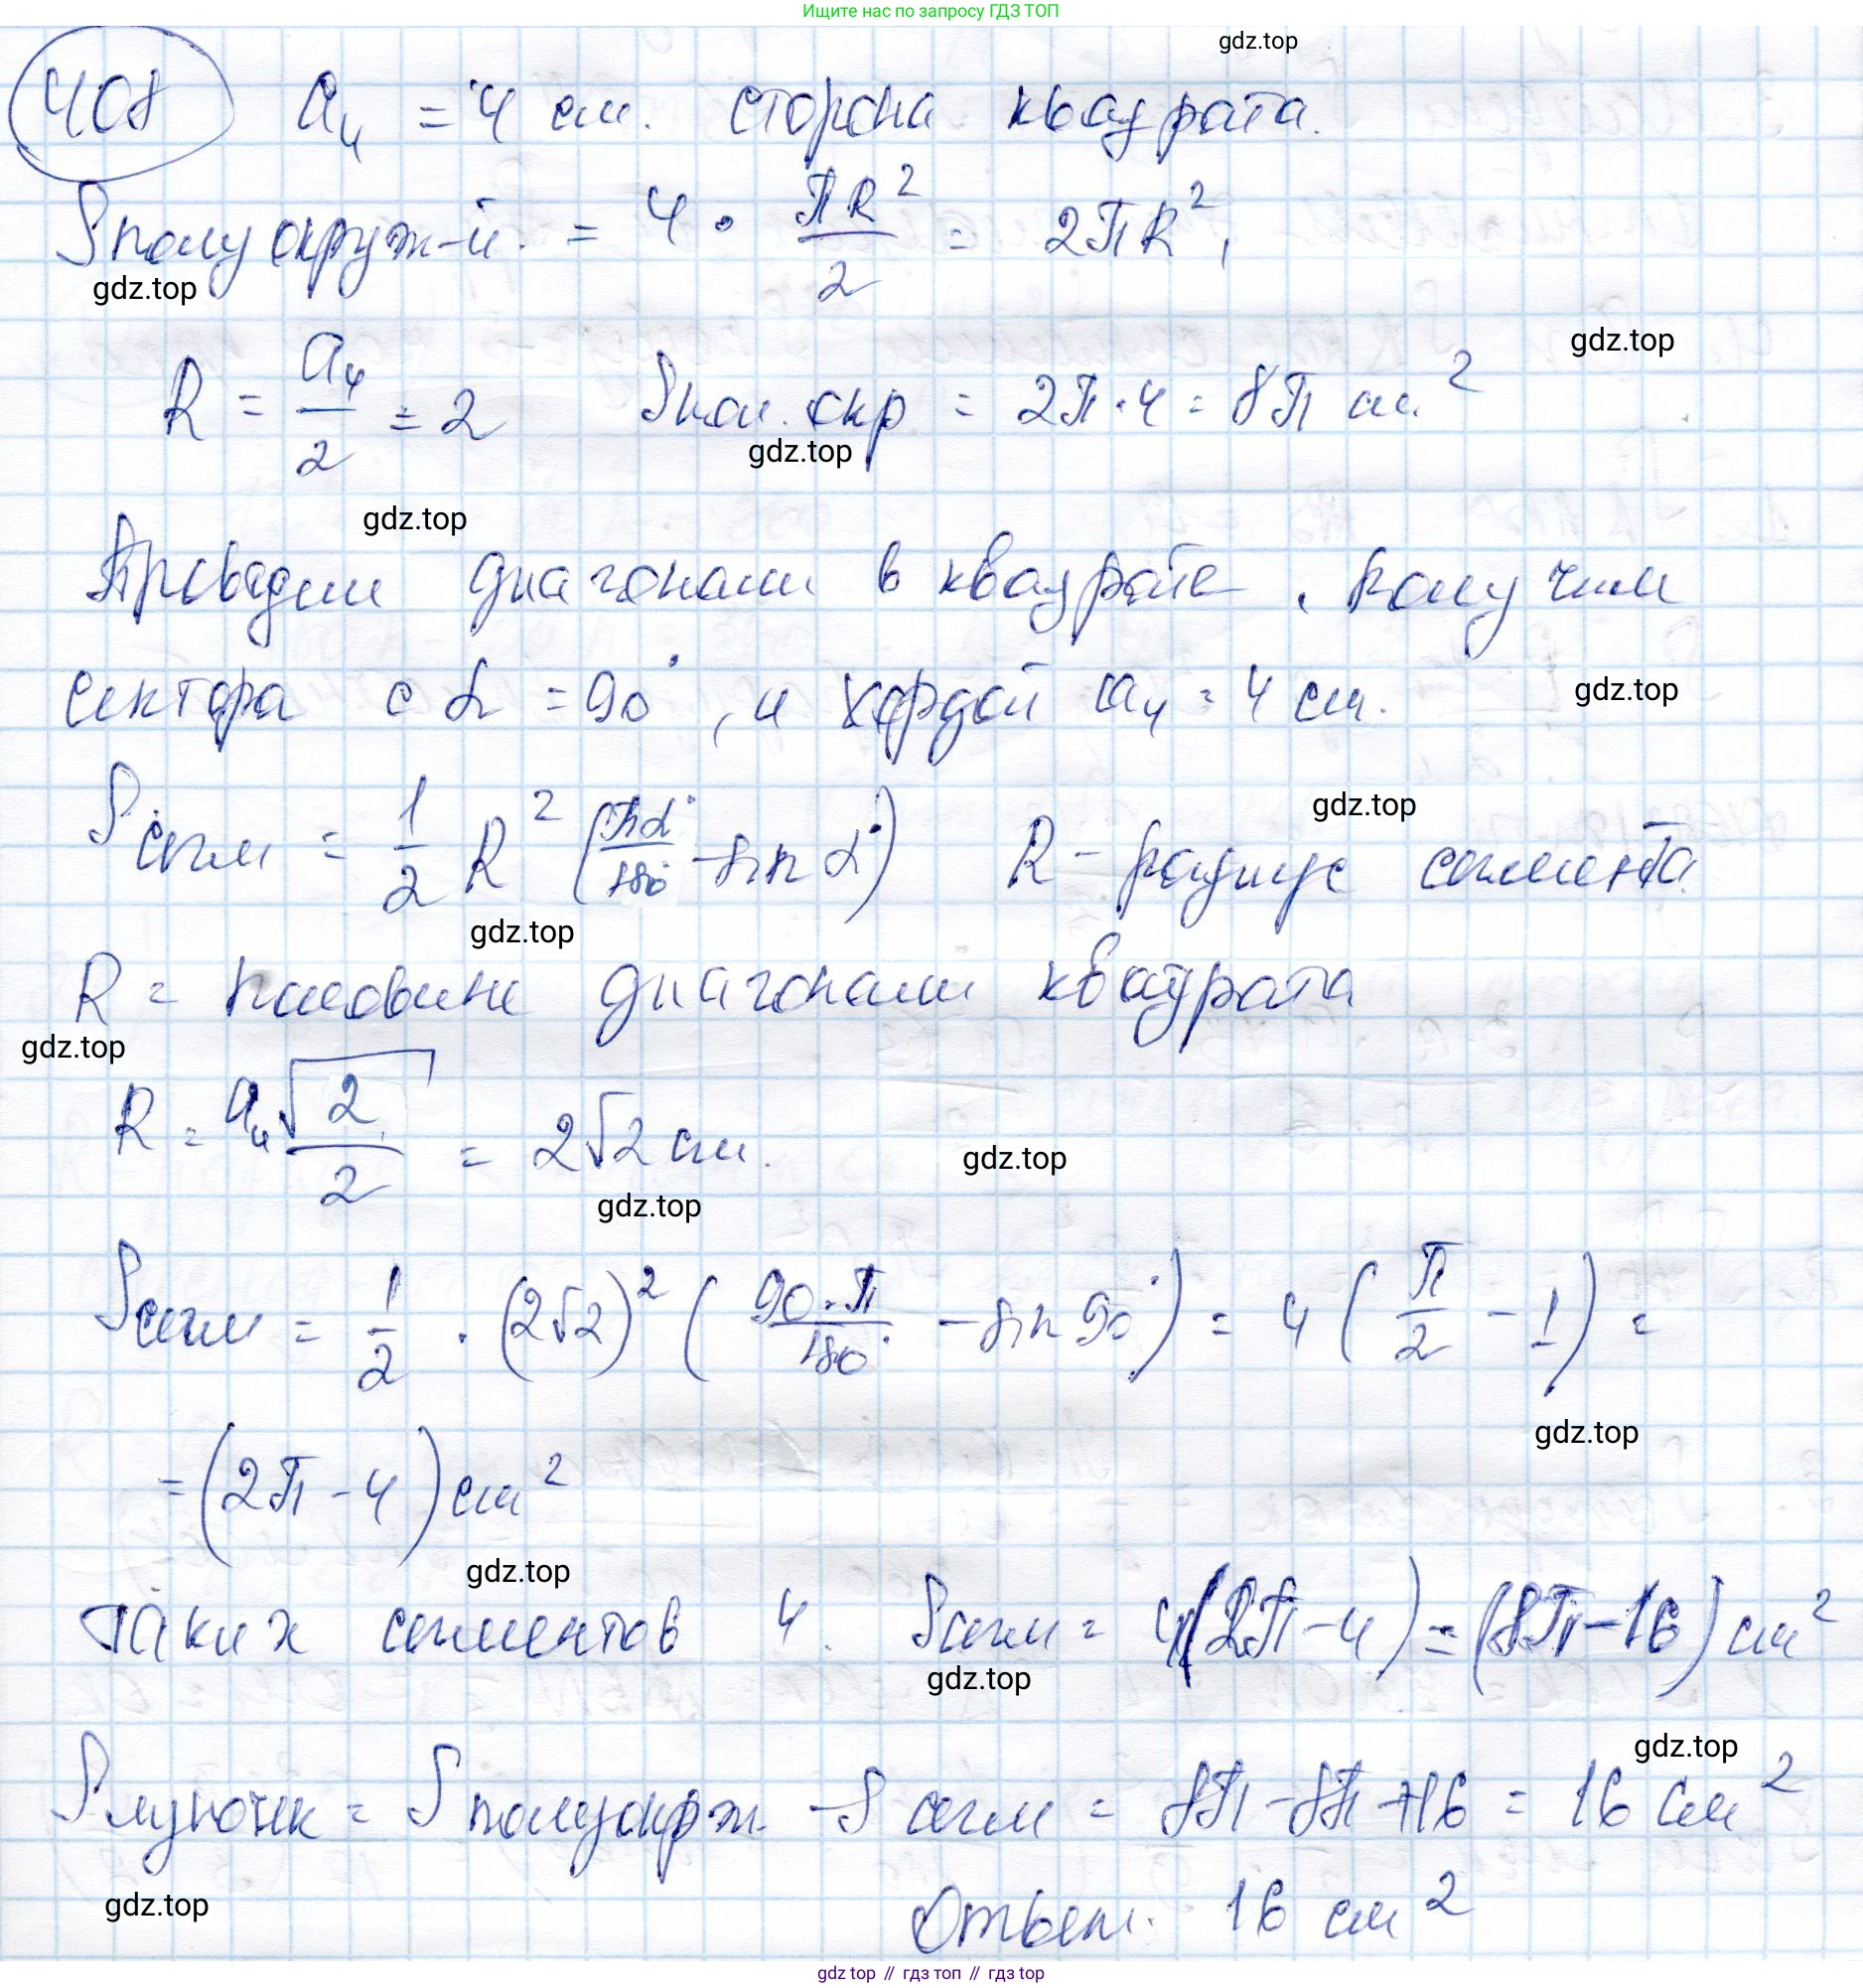 Ищите нас по запросу ГДЗ ТОП
gdz.top
408 a₄ = 4 см. сторона квадрата.
Sполуокруж-й. = 4 · πR²/2 = 2πR²,
gdz.top
gdz.top
R = a₄/2 = 2 Sпол. окр = 2π·4 = 8π см²
gdz.top
gdz.top
Проведем диагонали в квадрате. Получим
сектора с α = 90°, и хордой a₄ = 4 см.
gdz.top
Sсегм = 1/2 R² (πα°/180° - sin α°) R - радиус сегмента
gdz.top
gdz.top
R = половине диагонали квадрата
gdz.top
R = a₄√2/2 = 2√2 см.
gdz.top
gdz.top
Sсегм = 1/2 · (2√2)² (90·π/180° - sin 90°) = 4 (π/2 - 1) =
gdz.top
= (2π - 4) см²
gdz.top
Таких сегментов 4. Sсегм = 4(2π - 4) = (8π - 16) см²
gdz.top
gdz.top
Sлуночек = Sполуокрж. - Sсегм = 8π - 8π + 16 = 16 см²
gdz.top
Ответ: 16 см²
gdz top // гдз топ // гдз top